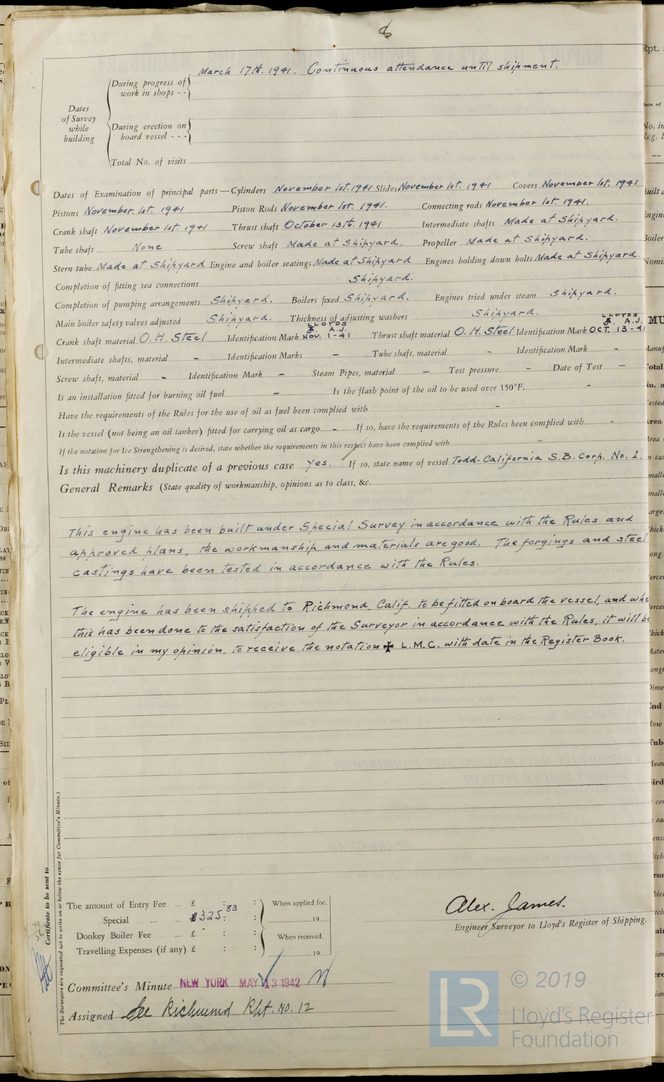 8
March 17th. 1941. Continuous attendance until shipment.
Dates of Survey while building
During progress of work in shops - -
During erection on board vessel - - -
Total No. of visits
Dates of Examination of principal parts—Cylinders November 1st. 1941 Slides November 1st. 1941 Covers November 1st. 1941
Pistons November 1st. 1941 Piston Rods November 1st. 1941. Connecting rods November 1st. 1941.
Crank shaft November 1st. 1941 Thrust shaft October 13th. 1941 Intermediate shafts Made at Shipyard.
Tube shaft None Screw shaft Made at Shipyard. Propeller Made at Shipyard.
Stern tube Made at Shipyard Engine and boiler seatings Made at Shipyard Engines holding down bolts Made at Shipyard.
Completion of fitting sea connections Shipyard.
Completion of pumping arrangements Shipyard. Boilers fixed Shipyard. Engines tried under steam Shipyard.
Main boiler safety valves adjusted Shipyard. Thickness of adjusting washers Shipyard.
Crank shaft material O.H. Steel Identification Mark LLOYDS A.J. NOV. 1-41 Thrust shaft material O.H. Steel Identification Mark LLOYDS A.J. OCT. 13-41
Intermediate shafts, material - Identification Marks - Tube shaft, material - Identification Mark -
Screw shaft, material - Identification Mark - Steam Pipes, material - Test pressure - Date of Test -
Is an installation fitted for burning oil fuel - Is the flash point of the oil to be used over 150°F. -
Have the requirements of the Rules for the use of oil as fuel been complied with -
Is the vessel (not being an oil tanker) fitted for carrying oil as cargo - If so, have the requirements of the Rules been complied with -
If the notation for Ice Strengthening is desired, state whether the requirements in this respect have been complied with -
Is this machinery duplicate of a previous case Yes. If so, state name of vessel Todd-California S.B. Corp. No. 1.
General Remarks (State quality of workmanship, opinions as to class, &c.
This engine has been built under Special Survey in accordance with the Rules and
approved plans, the workmanship and materials are good. The forgings and steel
castings have been tested in accordance with the Rules.
The engine has been shipped to Richmond, Calif. to be fitted on board the vessel, and
this has been done to the satisfaction of the Surveyor in accordance with the Rules, it will
eligible in my opinion, to receive the notation ✠ L.M.C. with date in the Register Book.
Certificate to be sent to
(The Surveyors are requested not to write on or below the space for Committee's Minute.)
The amount of Entry Fee ... £ : :
Special ... ... $325.83
Donkey Boiler Fee ... £ : :
Travelling Expenses (if any) £ : :
When applied for,
19
When received,
19
Alex. James.
Engineer Surveyor to Lloyd's Register of Shipping.
Committee's Minute NEW YORK MAY 13 1942
Assigned See Richmond Rpt. No. 12
LR
© 2019
Lloyd's Register
Foundation